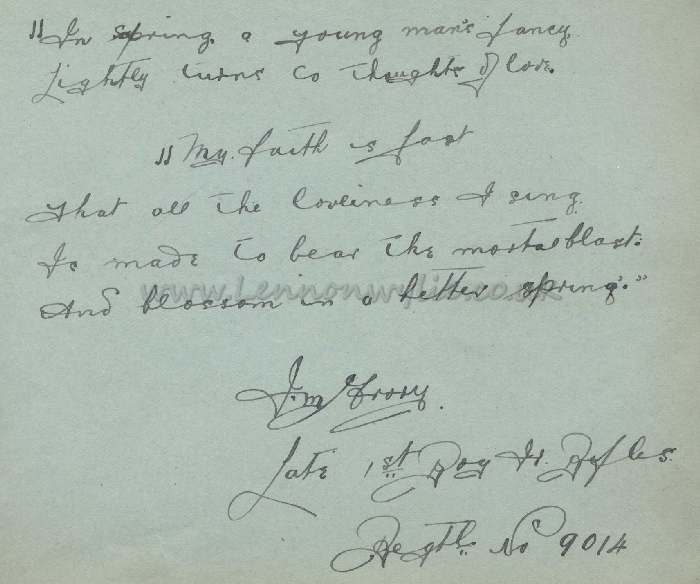 "In spring a young man's fancy
Lightly turns to thoughts of love.
"My faith is fast
That all the loveliness I sing
Is made to bear the mortal blast.
And blossom in a better spring."
www.Lennonwylie.co.uk
J.M
Late 1st Roy Ir. Rifles
Regtl. No 9014